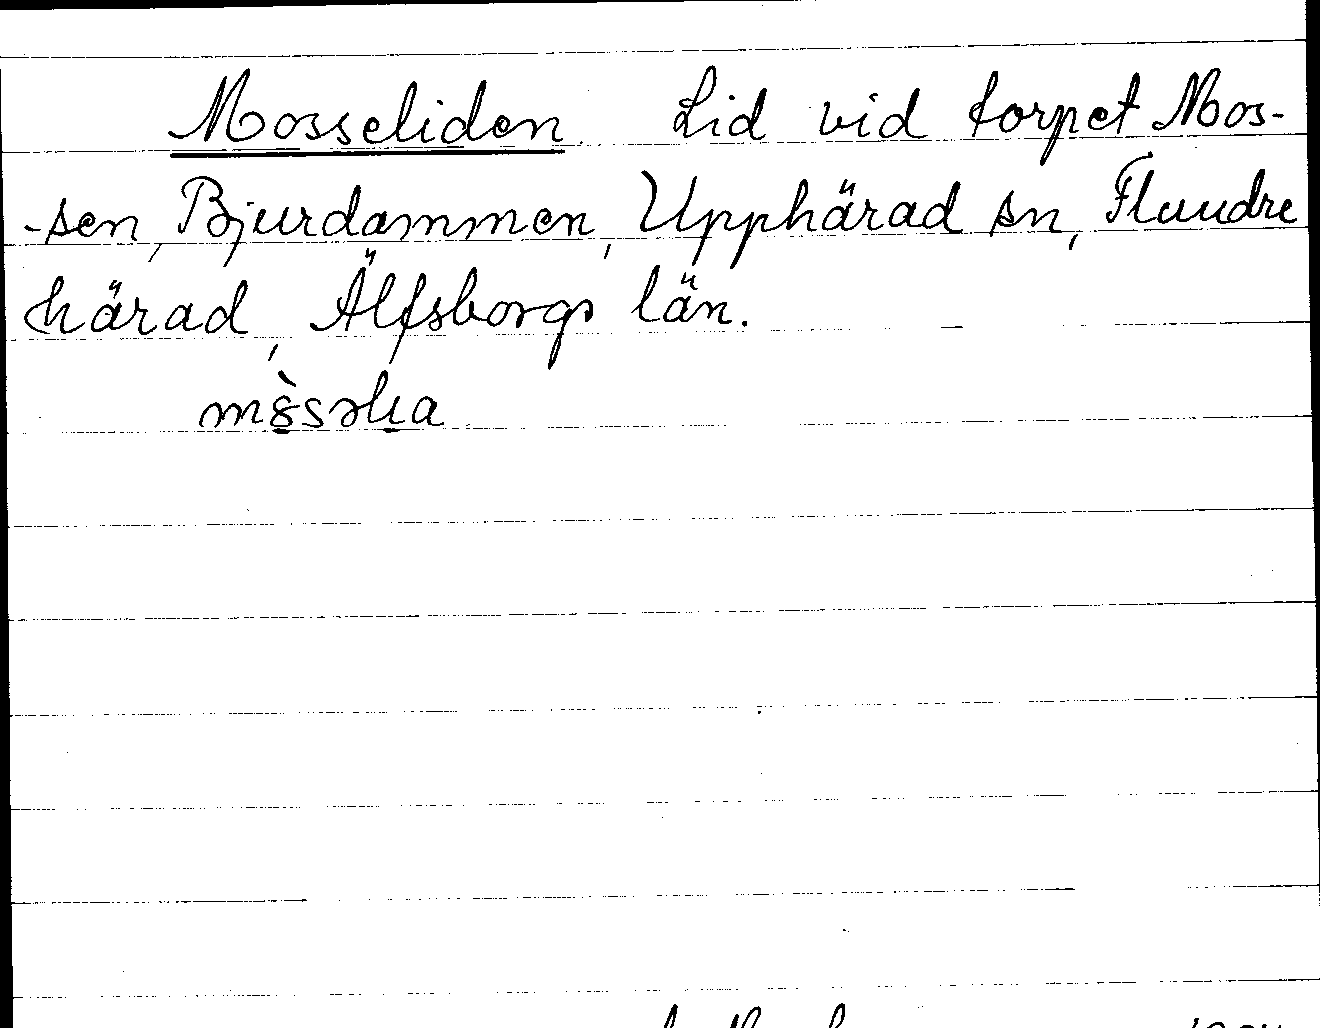 Mosseliden. Lid vid torpet Mos-
-sen, Bjurdammen, Upphärad sn, Flundre
härad, Älfsborgs län.